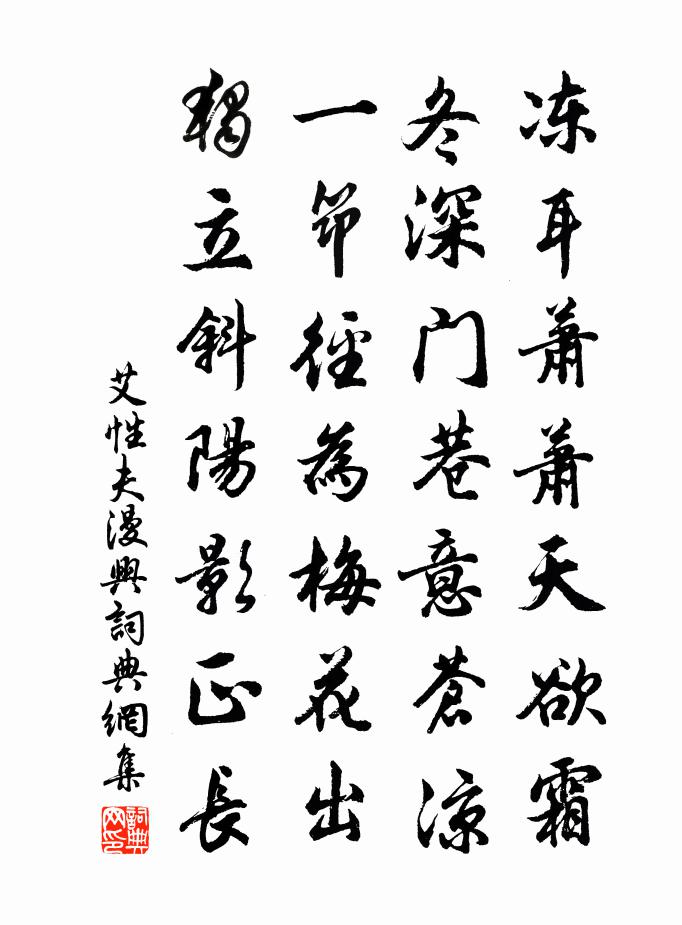 凍耳蕭蕭天欲霜
冬深門巷意蒼涼
一笻徑為梅花出
獨立斜陽影正長
艾性夫漫興詞典網集
詞典
网印